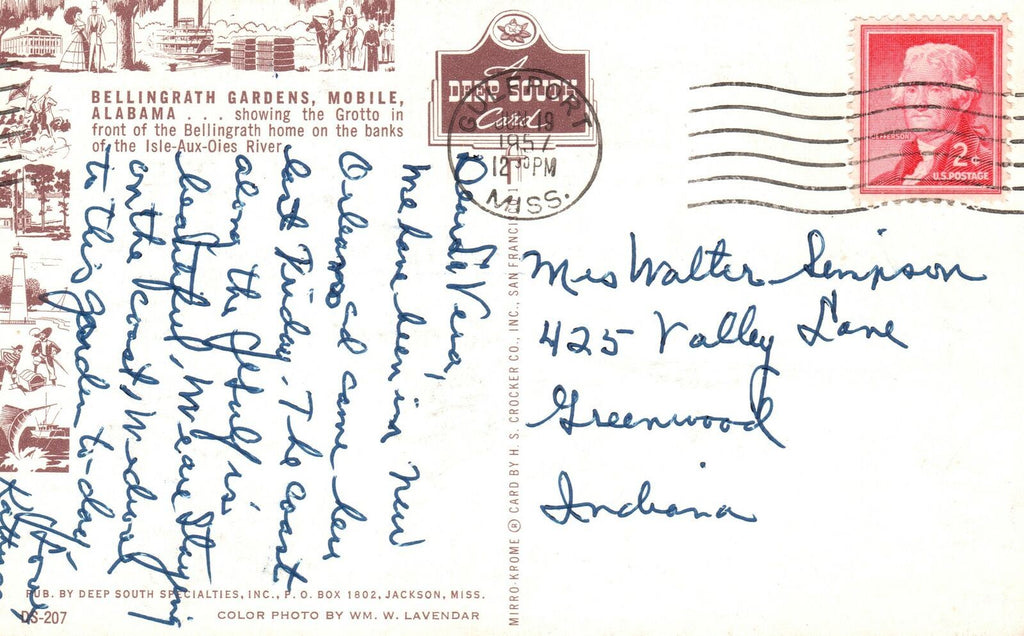 BELLINGRATH GARDENS, MOBILE,
ALABAMA . . . showing the Grotto in
front of the Bellingrath home on the banks
of the Isle-Aux-Oies River.
A
DEEP SOUTH
Card
GULFPORT
19
1957
12 30 PM
MISS.
JEFFERSON
2¢
U.S. POSTAGE
Dear Vera,
We have been in New
Orleans and came here
last Friday. The coast
along the gulf is
beautiful, We are staying
on the coast, We drove
to this garden to-day
Love
Mrs Walter Simpson
425 Valley Lane
Greenwood
Indiana
MIRRO-KROME ® CARD BY H. S. CROCKER CO., INC., SAN FRANCI
PUB. BY DEEP SOUTH SPECIALTIES, INC., P. O. BOX 1802, JACKSON, MISS.
DS-207
COLOR PHOTO BY WM. W. LAVENDAR